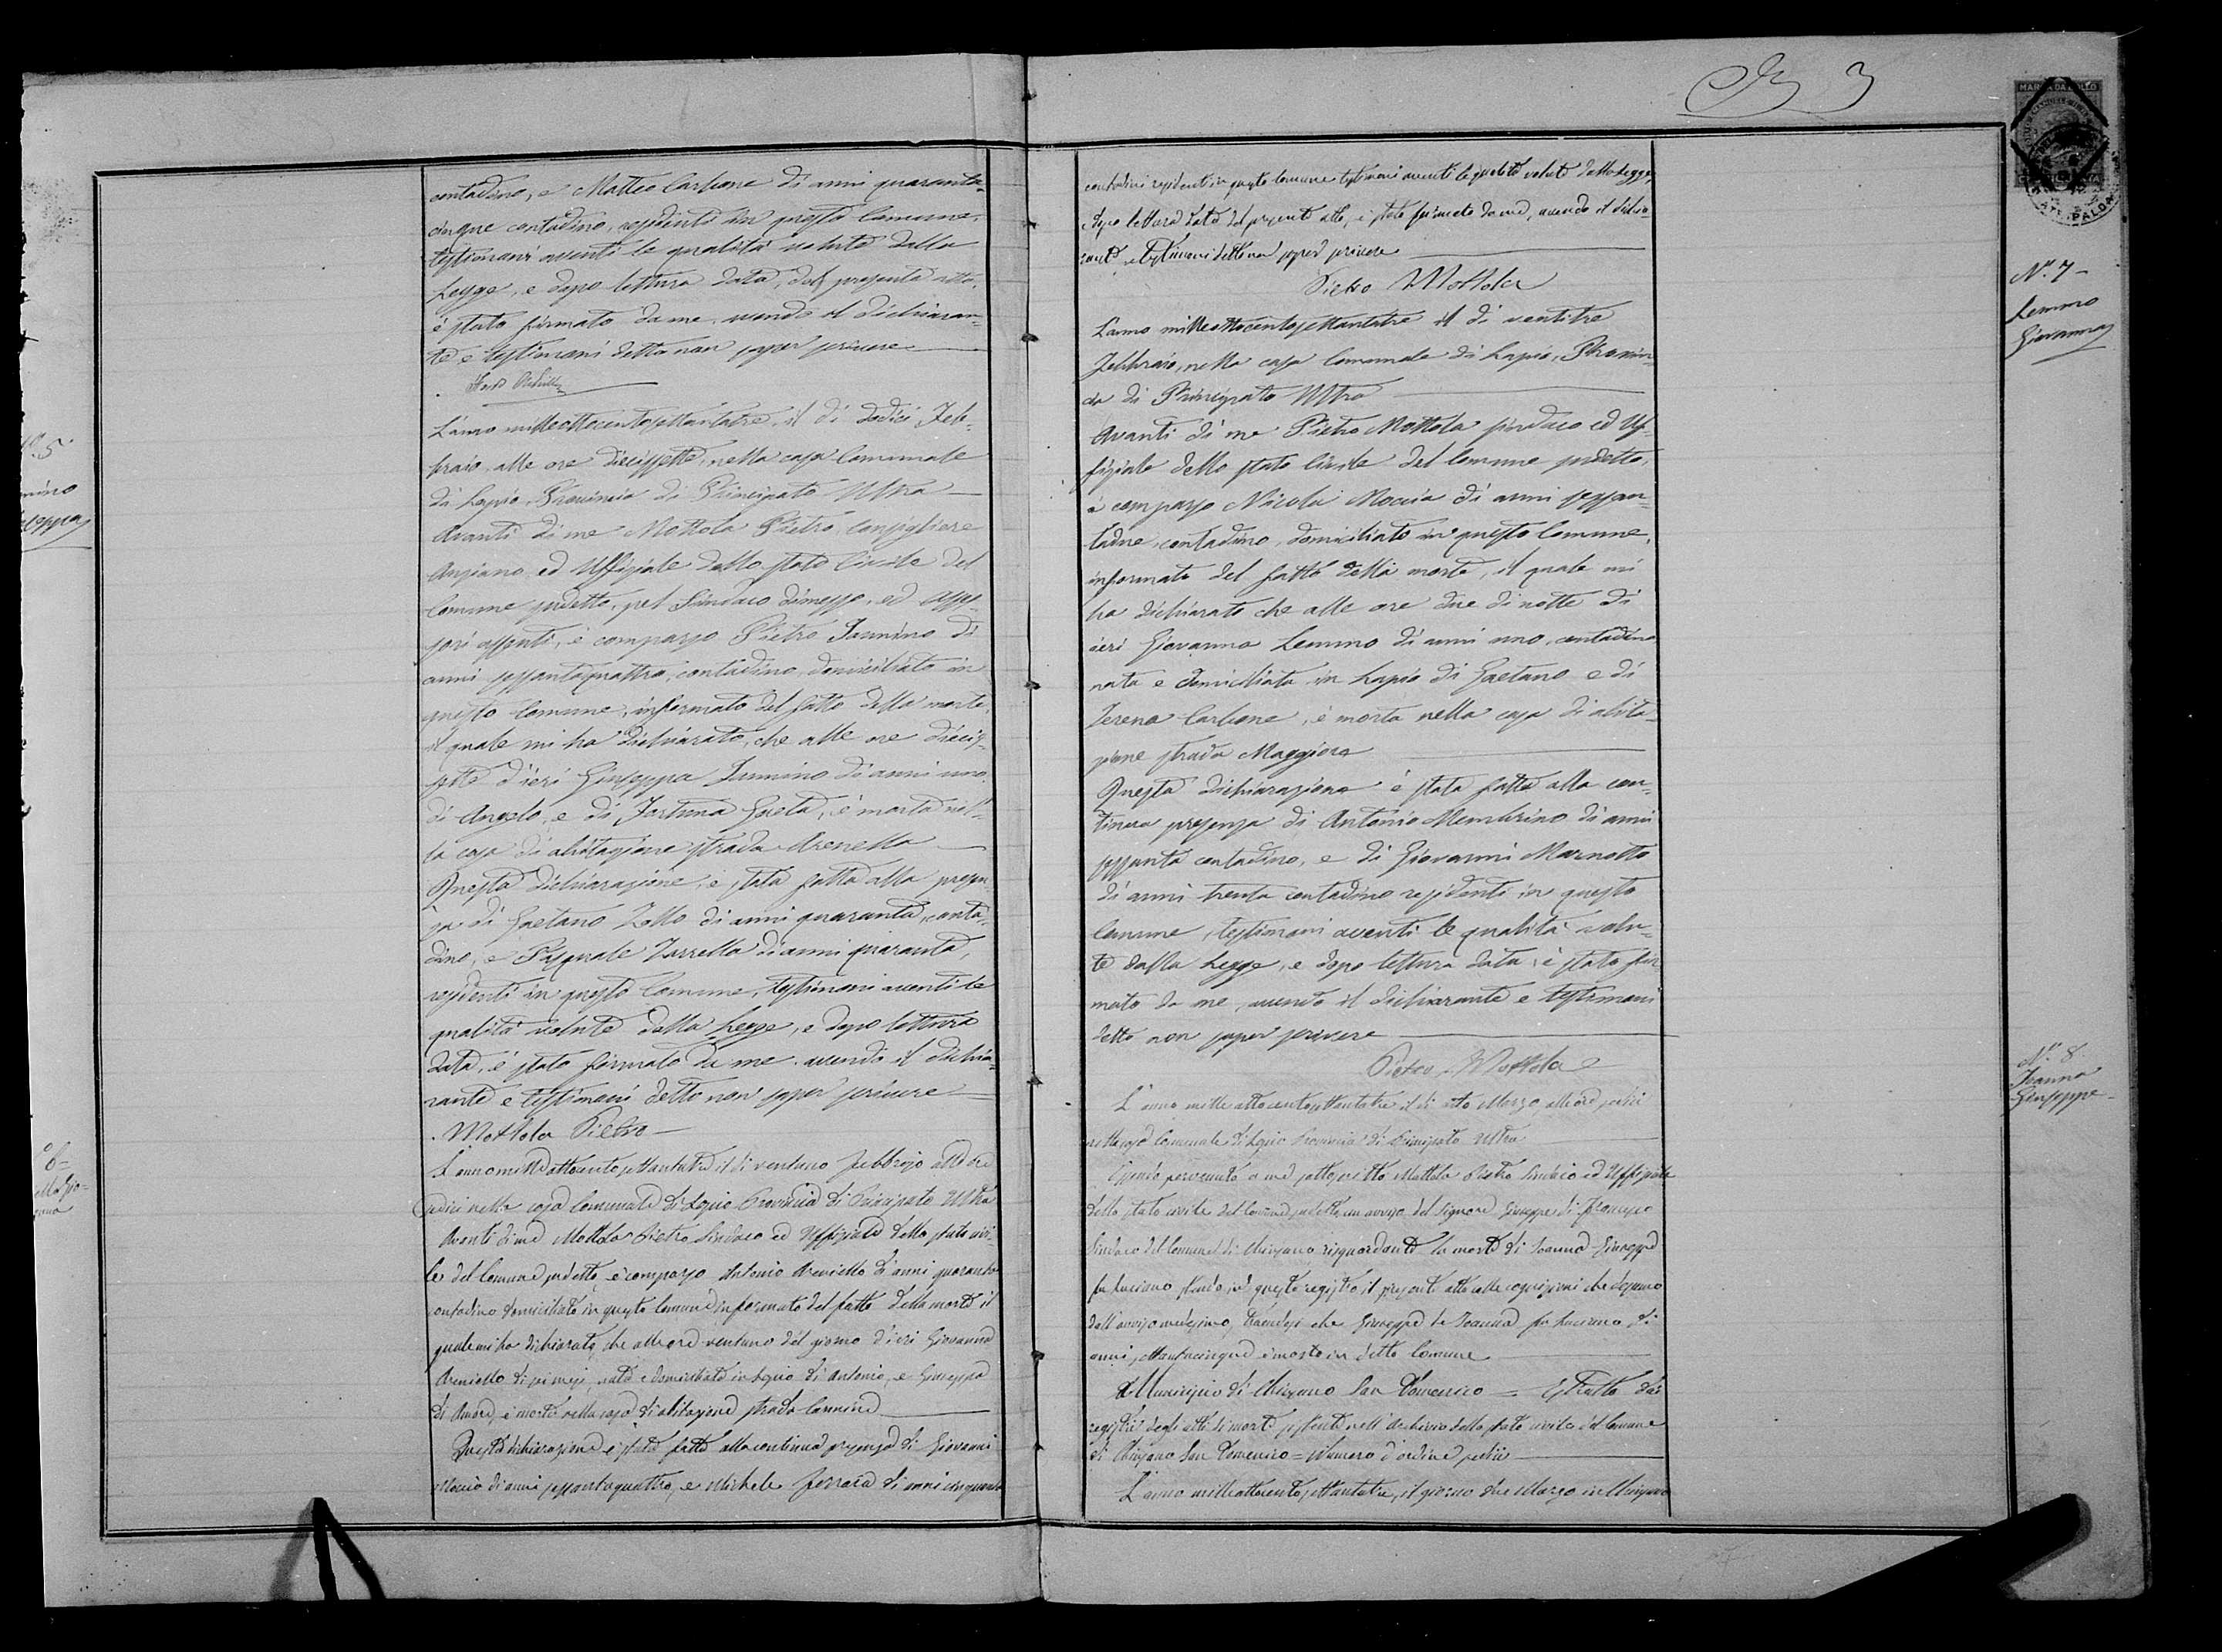 contadino, e Matteo Carbone di anni quaranta-
cinque contadino, residenti in questo Comune,
testimoni aventi le qualità volute dalla
Legge, e dopo lettura data, del presente atto,
è stato firmato da me, avendo il dichiaran-
te e testimoni detto non saper scrivere
N.o 5
L'anno milleottocentosettantatre, il dì dodici Feb-
braio, alle ore diecissette, nella casa Comunale
di Lapio Provincia di Principato Ultra
Avanti di me Mottola Pietro Consigliere
Anziano ed Uffiziale dello stato Civile del
Comune sudetto, pel Sindaco dimesso, ed Asses-
sori assenti, è comparso Pietro Iannino di
anni sessantaquattro, contadino, domiciliato in
questo Comune, informato del fatto della morte,
il quale mi ha dichiarato, che alle ore diecis-
sette d'ieri Giuseppa Iannino di anni uno,
di Angelo, e di Fortuna Gaeta, è morta nel-
la casa di abitazione strada Arenella
Questa dichiarazione, è stata fatta alla presen-
za di Gaetano Zollo di anni quaranta, conta-
dino, e Pasquale Zarrella di anni quaranta,
residenti in questo Comune, testimoni aventi le
qualità volute dalla Legge, e dopo lettura
data, è stato firmato da me, avendo il dichia-
rante e testimoni detto non saper scrivere
Mottola Pietro
6
L'anno milleottocentosettantatre il dì ventuno Febbrajo alle ore
sedici nella casa Comunale di Lapio Provincia di Principato Ultra
Avanti di me Mottola Pietro Sindaco ed Uffiziale dello stato civi-
le del Comune sudetto, è comparso Antonio Areniello d'anni quaranta
contadino domiciliato in questo Comune informato del fatto della morte il
quale mi ha dichiarato, che alle ore ventuno del giorno d'ieri Giovanna
Areniello di sei mesi, nata e domiciliata in Lapio di Antonio, e Giuseppa
di Amore, è morta nella casa di abitazione strada
Questa dichiarazione è stata fatta alla continua presenza di Giovanni
Moccia di anni sessantaquattro, e Michele Ferrara di anni cinquanta
3
contadini residenti in questo Comune testimoni aventi le qualità volute dalla Legge,
e dopo lettura data del presente atto, è stato firmato da me, avendo il dichia-
rante e testimoni detto non saper scrivere
Pietro Mottola
N.o 7
Lemmo
Giovanna
L'anno milleottocentosettantatre il dì ventitre
Febbraio, nella casa Comunale di Lapio, Provin-
cia di Principato Ultra
Avanti di me Pietro Mottola Sindaco ed Uf-
fiziale dello stato Civile del Comune sudetto,
è comparso Nicola Moccia di anni sessan-
tadue, contadino, domiciliato in questo Comune,
informato del fatto della morte, il quale mi
ha dichiarato che alle ore due di notte di
ieri Giovanna Lemmo di anni uno, contadina
nata e domiciliata in Lapio di Gaetano e di
Teresa Carbone, è morta nella casa di abita-
zione strada Maggiore
Questa dichiarazione è stata fatta alla con-
tinua presenza di Antonio Membrino di anni
sessanta contadino, e di Giovanni Marnotto
di anni trenta contadino residenti in questo
Comune, testimoni aventi le qualità volu-
te dalla Legge, e dopo lettura data, è stato fir
mato da me, avendo il dichiarante e testimoni
detto non saper scrivere
Pietro Mottola
N.o 8
Ioanna
Giuseppe
L'anno mille ottocentosettantatre il dì otto Marzo, alle ore sedici
nella casa Comunale di Lapio Provincia di Principato Ultra
Essendo pervenuto a me sottoscritto Mottola Pietro Sindaco ed Uffiziale
dello stato civile del Comune sudetto un avviso del Signore Giuseppe di Francesco
Sindaco del Comune di Chiusano risguardante la morte di Ioanna Giuseppe
fu Luciano, stendo in questo registro il presente atto colle cognizioni che desumo
dall'avviso medesimo, che Giuseppe de Ioanna fu Luciano di
anni settantacinque è morto in detto Comune
Municipio di Chiusano San Domenico = Estratto dai
registri degli atti di morte esistenti nell'archivio dello stato civile del Comune
di Chiusano San Domenico = Numero d'ordine sedici
L'anno milleottocentosettantatre, il giorno due Marzo in Chiusano
MARCA DA BOLLO
ATRIPALDA